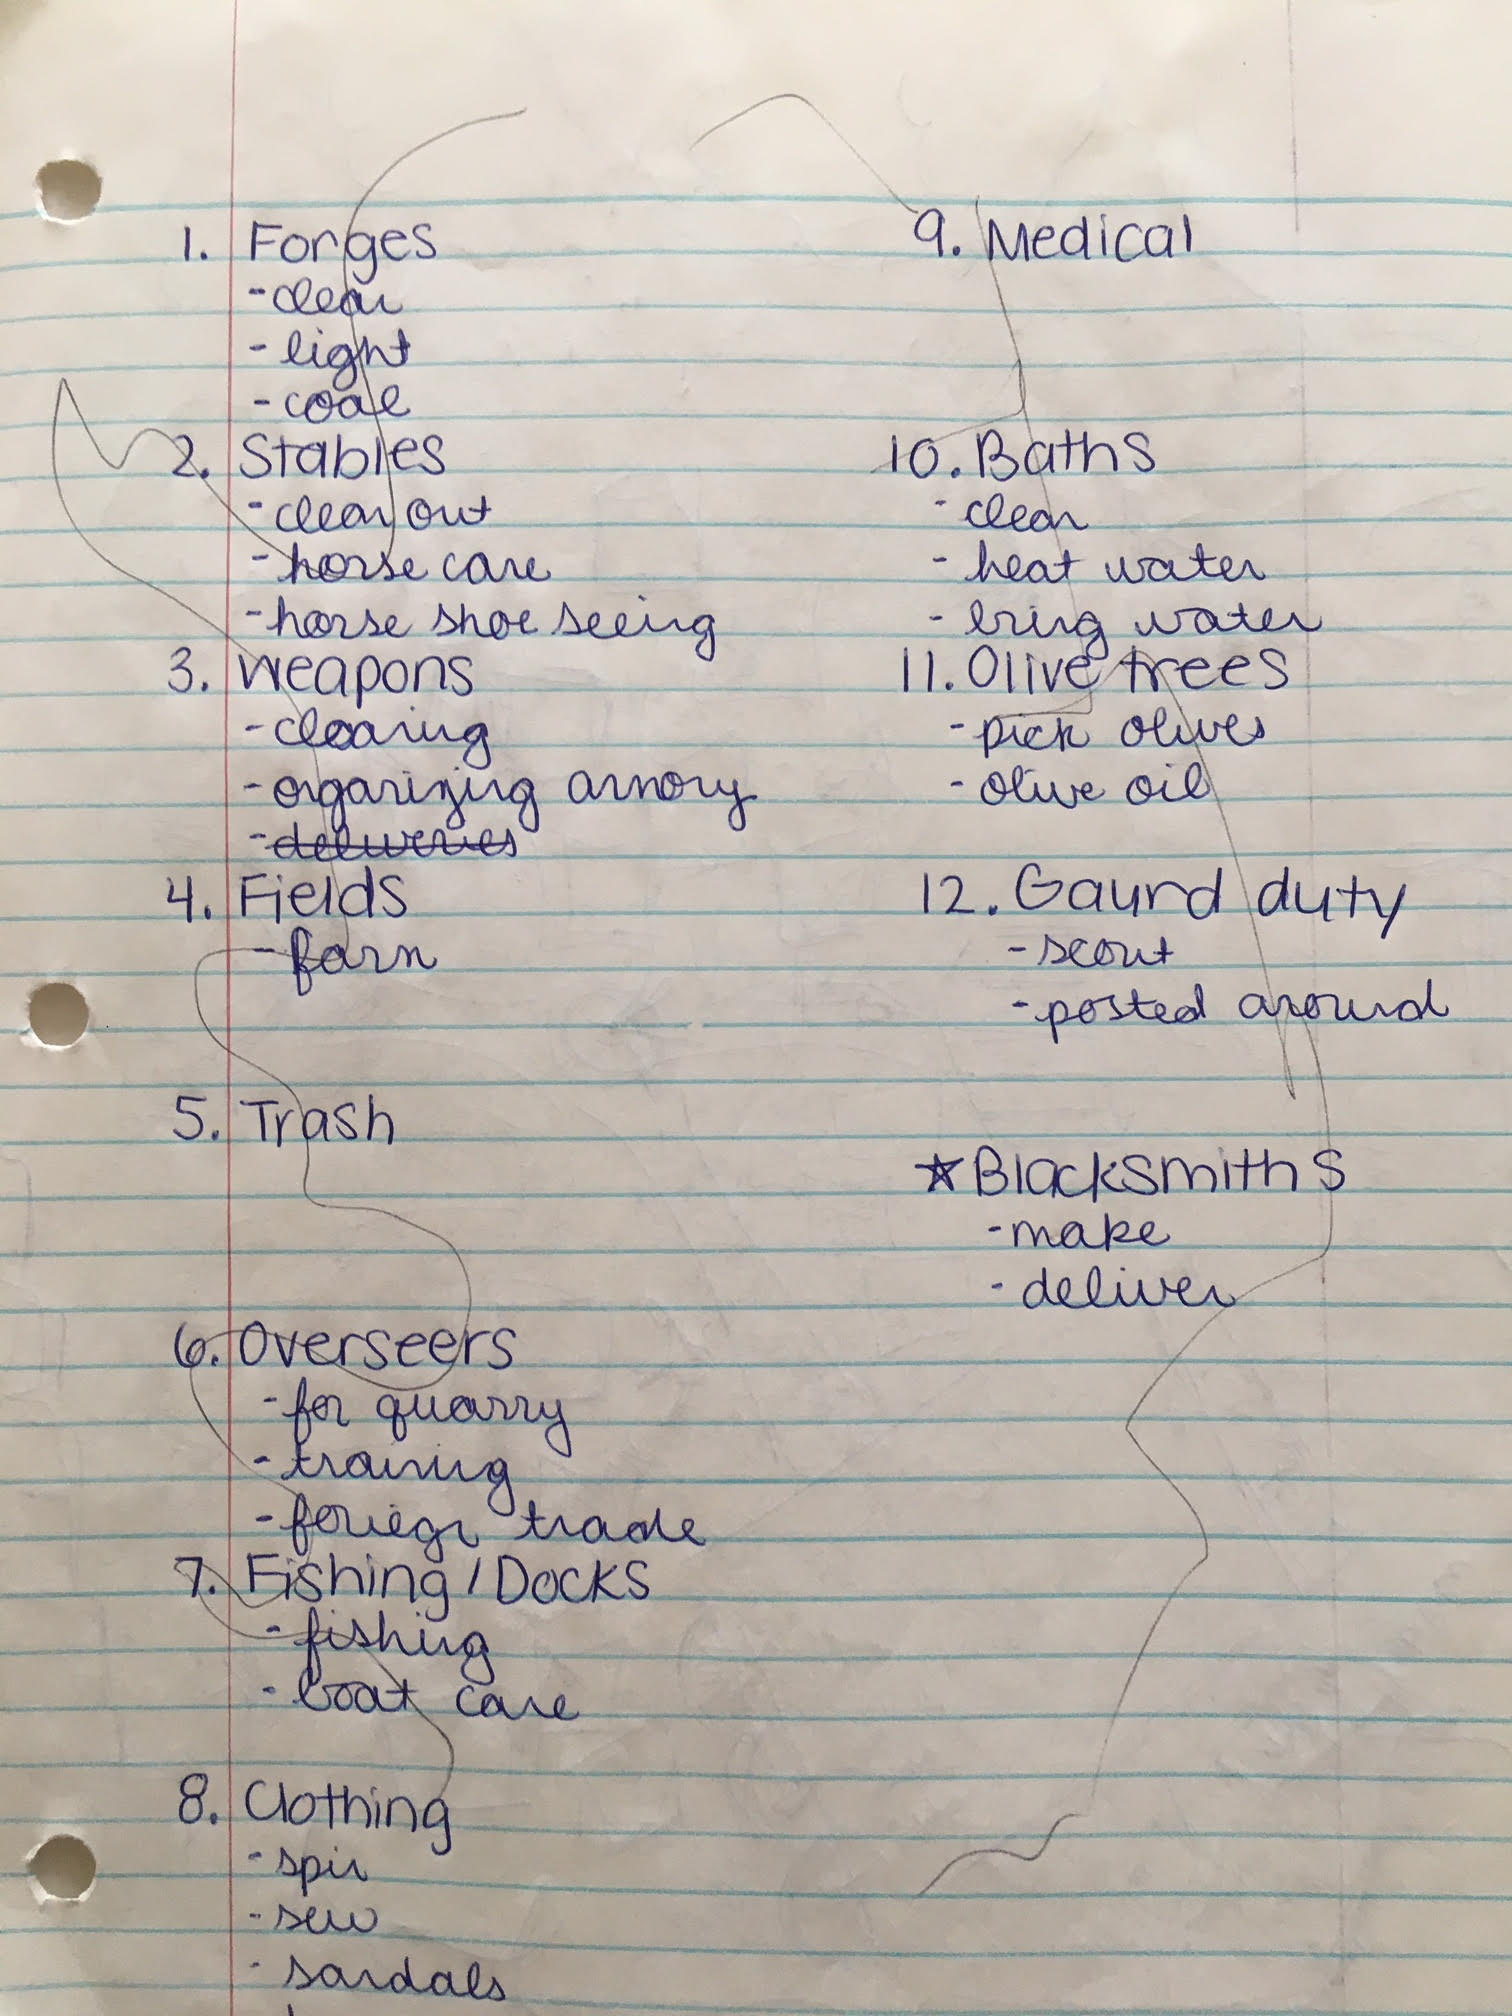 1. Forges
- clean
- light
- coal
2. Stables
- clean out
- horse care
- horse shoe seeing
3. Weapons
- cleaning
- organizing armory
- deliveries
4. Fields
- farm
5. Trash
6. Overseers
- for quarry
- training
- foriegn trade
7. Fishing / Docks
- fishing
- boat care
8. Clothing
- spin
- sew
- sandals
9. Medical
10. Baths
- clean
- heat water
- bring water
11. Olive trees
- pick olives
- olive oil
12. Gaurd duty
- scout
- posted around
☆ Blacksmiths
- make
- deliver